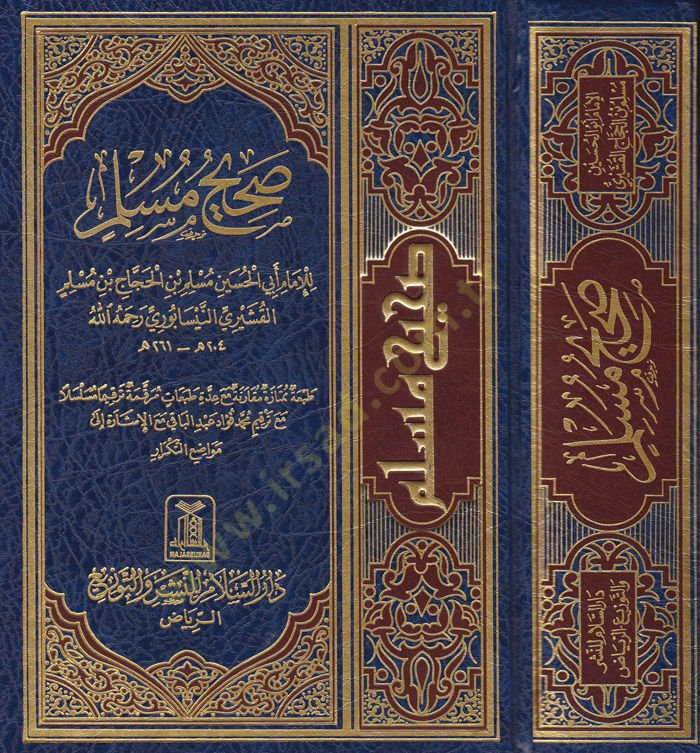 صَحِيحُ مُسْلِمٍ
لِلإِمَامِ أَبِي الْحُسَيْنِ مُسْلِمِ بْنِ الْحَجَّاجِ بْنِ مُسْلِمٍ
القُشَيْرِيِّ النَّيْسَابُورِيِّ رَحِمَهُ اللهُ
٢٠٤هـ – ٢٦١هـ
طبعة ممتازة مقارنة مع عدة طبعات مرقمة ترقيما مسلسلا
مع ترقيم محمد فؤاد عبد الباقي مع الإشارة إلى
مواضع التكرار
DARUSSALAM
دار السلام للنشر والتوزيع
الرياض
صحيح مسلم
الإمام أبو الحسين
مسلم بن الحجاج القشيري
صحيح مسلم
دار السلام للنشر
والتوزيع الرياض
www.irsad.com.tr